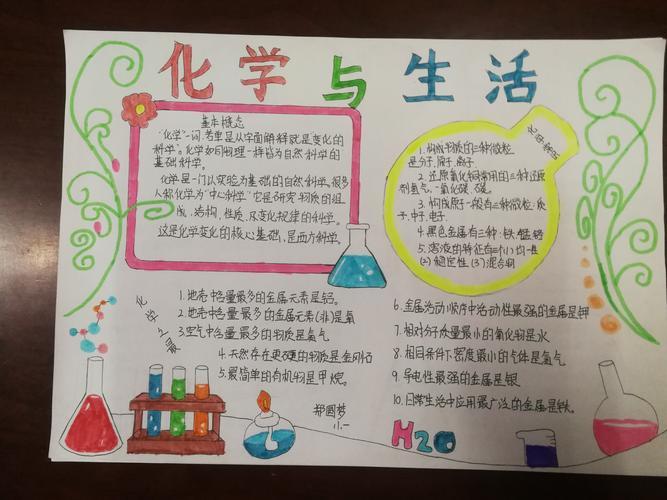 化学与生活
基本概念
"化学"一词,若单是从字面解释就是变化的
科学。化学如同物理一样皆为自然科学的
基础科学。
化学是一门以实验为基础的自然科学。很多
人称化学为"中心科学"它是研究物质的组
成,结构,性质,及变化规律的科学。
这是化学变化的核心基础,是西方科学。
1.构成物质的三种微粒
是分子,原子,离子
2.还原氧化铜常用的三种还原
剂氢气,一氧化碳、碳。
3.构成原子一般有三种微粒:质
子,中子,电子
4.黑色金属有三种:铁、锰、铬
5.溶液的特征有三个(1)均一性
(2)稳定性(3)混合物
化学之最
1.地壳中含量最多的金属元素是铝。
2.地壳中含量最多的金属元素(非)是氧
3.空气中含量最多的物质是氮气
4.天然存在更硬的物质是金刚石
5.最简单的有机物是甲烷。
郑圆梦
6.金属活动顺序中活动性最强的金属是钾
7.相对分子质量最小的氧化物是水
8.相同条件下密度最小的气体是氢气
9.导电性最强的金属是银
10.日常生活中应用最广泛的金属是铁。
H2O